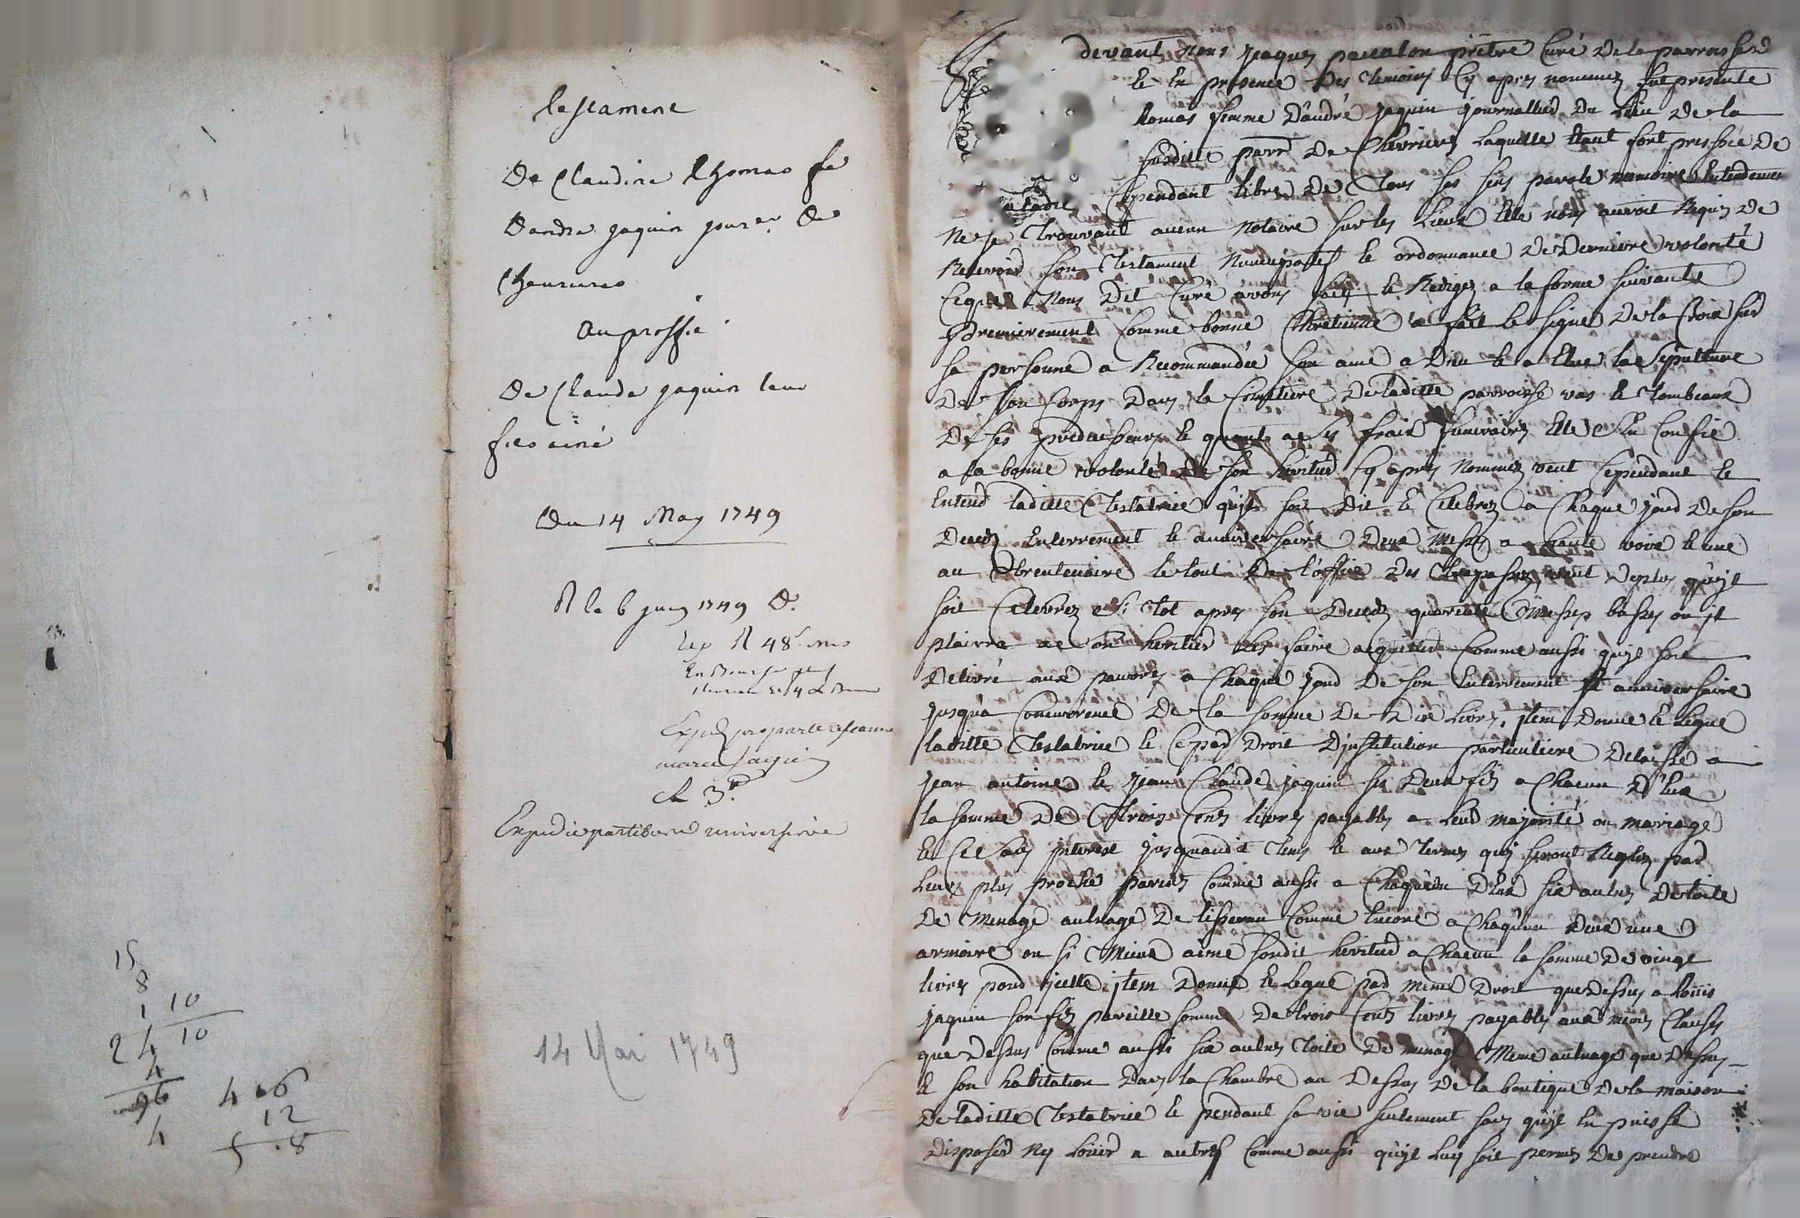 testament
De Claudine thomas fe
Dandre jaquin jour.er De
Chevrieres
Au proffit
De Claude jaquin leur
fils ainé
Du 14 May 1749
R le 6 juin 1749 D.
Exp R 48
Expedie partibus universitvie
14 Mai 1749
15
8
1 10
2 4 10
4
96
4
4.6
12
5.8
devant nous jaques pascalon prêtre Curé de la parroisse de
et en presence des temoins cy apres nommez fut presente
thomas femme d'andré jaquin journallier du lieu de la
susditte parr de Chevrieres laquelle etant fort pressée de
maladie cependant libre de tous ses sens parole memoire entendemen
ne se trouvant aucun notaire sur les lieux elle nous auroit Requis de
Recevoir son testament nuncupatif et ordonnance de derniere volonté
ce que Nous dit Curé avons fait et Redigez a la forme suivante
premierement comme bonne Chretienne a fait le signe de la Croix sur
sa personne a Recommandée son ame a Dieu et a Elue la sepulture
de son Corps dans le Cimetiere de laditte parroisse vas et tombeaux
de ses predecesseurs et quant a ses frais funeraires Elle s'en Confie
a la bonne volonté de son heritier cy apres nommez veut cependant et
Entend laditte testatrice qu'il soit dit et Celebrez a Chaque jour de son
Deces Enterrement et anniversaire deux Messes a haute voix et une
au trentenaire le tout de l'office des trepassez veut deplus qu'il
soit Celebrez si tot apres son Deces quarente Messes basses ou il
plairra a son heritier les faire acquitter comme aussi qu'il soit
Delivré aux pauvres a Chaque jour de son Enterrement et anniversaire
jusqu'a concurrence de la somme de dix livres, jtem donne et legue
laditte testatrice et ce par droit d'institution particuliere delaisse a
jean antoine et jean Claude jaquin ses deux fils a Chacun d'eux
la somme de trois Cents livres payables a leur majorité ou marriage
et ce sans interest jusquaudit tems et aux termes qui seront Reglez par
leurs plus proche parents comme aussi a Chaqu'un d'eux six aulnes de toile
de menage aulnage de tisseran comme encore a Chaqu'un deux une
armoire ou si mieux aime sondit heritier a Chacun la somme de vingt
livres pour icelle, jtem donne et legue par meme droit que dessus a loüis
jaquin son fils pareille somme de trois Cents livres payables aux mêmes Clauses
que dessus comme aussi six aulnes toile de menage Meme aulnage que dessus
et son habitation dans la Chambre au dessus de la boutique de la maison
de laditte testatrice et pendant sa vie seulement sans qu'il en puisse
disposer ny loüer a autres comme aussi qu'il luy soit permis de prendre